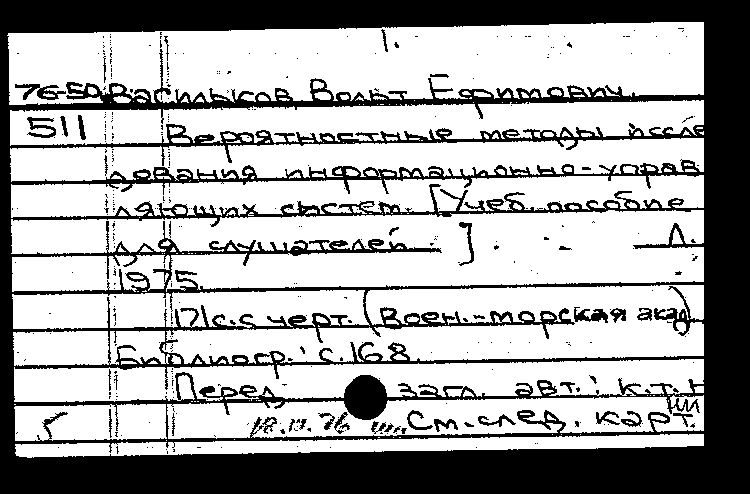 1.
76-50 Васильков, Вольт Ефимович.
511 Вероятностные методы иссле
дования информационно-управ
ляющих систем. [Учеб. пособие
для слушателей]. Л.
1975.
171 с. с черт. (Воен.-морская акад.
Библиогр.: с. 168.
Перед загл. авт.: к.т.н
См. след. карт.